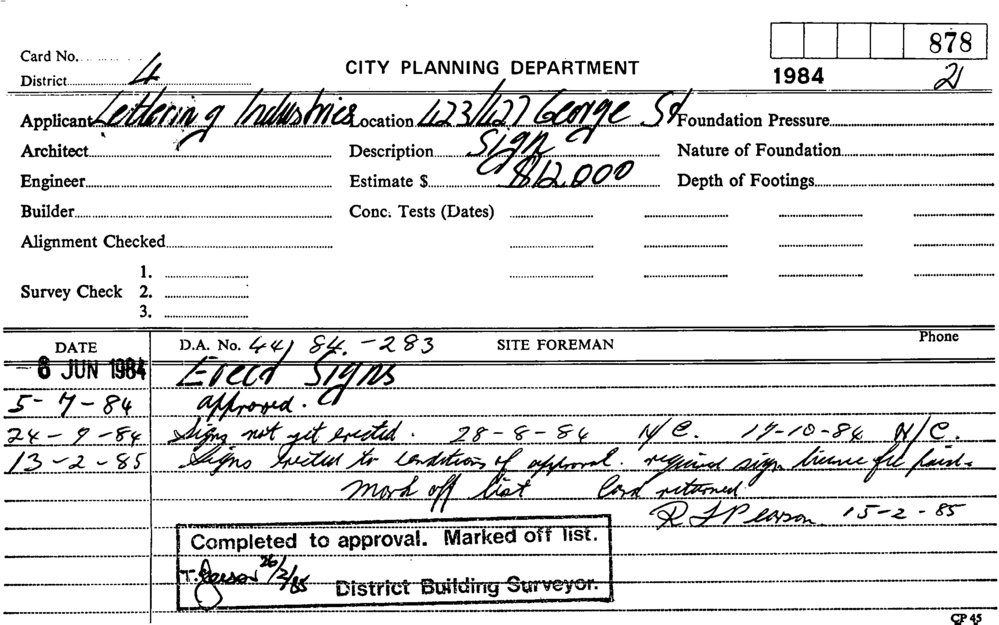 Card No.
878
District 4
CITY PLANNING DEPARTMENT
1984
21
Applicant Lettering Industries
Location 423/427 George St
Foundation Pressure
Architect
Description Sign
Nature of Foundation
Engineer
Estimate $ $12,000
Depth of Footings
Builder
Conc. Tests (Dates)
Alignment Checked
1.
Survey Check 2.
3.
DATE
D.A. No. 44/84.-283
SITE FOREMAN
Phone
6 JUN 1984 Erect Signs
5-7-84 approved.
24-9-84 Signs not yet erected. 28-8-84 N/C. 17-10-84 N/C.
13-2-85 Signs erected to conditions of approval. required sign licence fee paid.
Mark off list Card returned
R Pearson 15-2-85
Completed to approval. Marked off list.
T. 26/2/85 District Building Surveyor.
CP 45